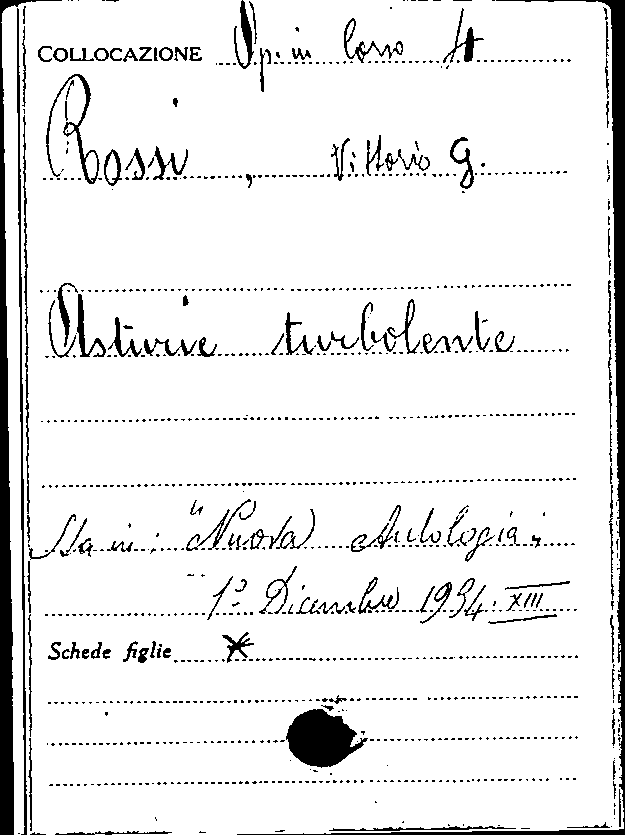 COLLOCAZIONE Op. in Corso 4
Rossi, Vittorio G.
Asturie turbolente
Sta in: "Nuova Antologia;
1º Dicembre 1934. XIII
Schede figlie